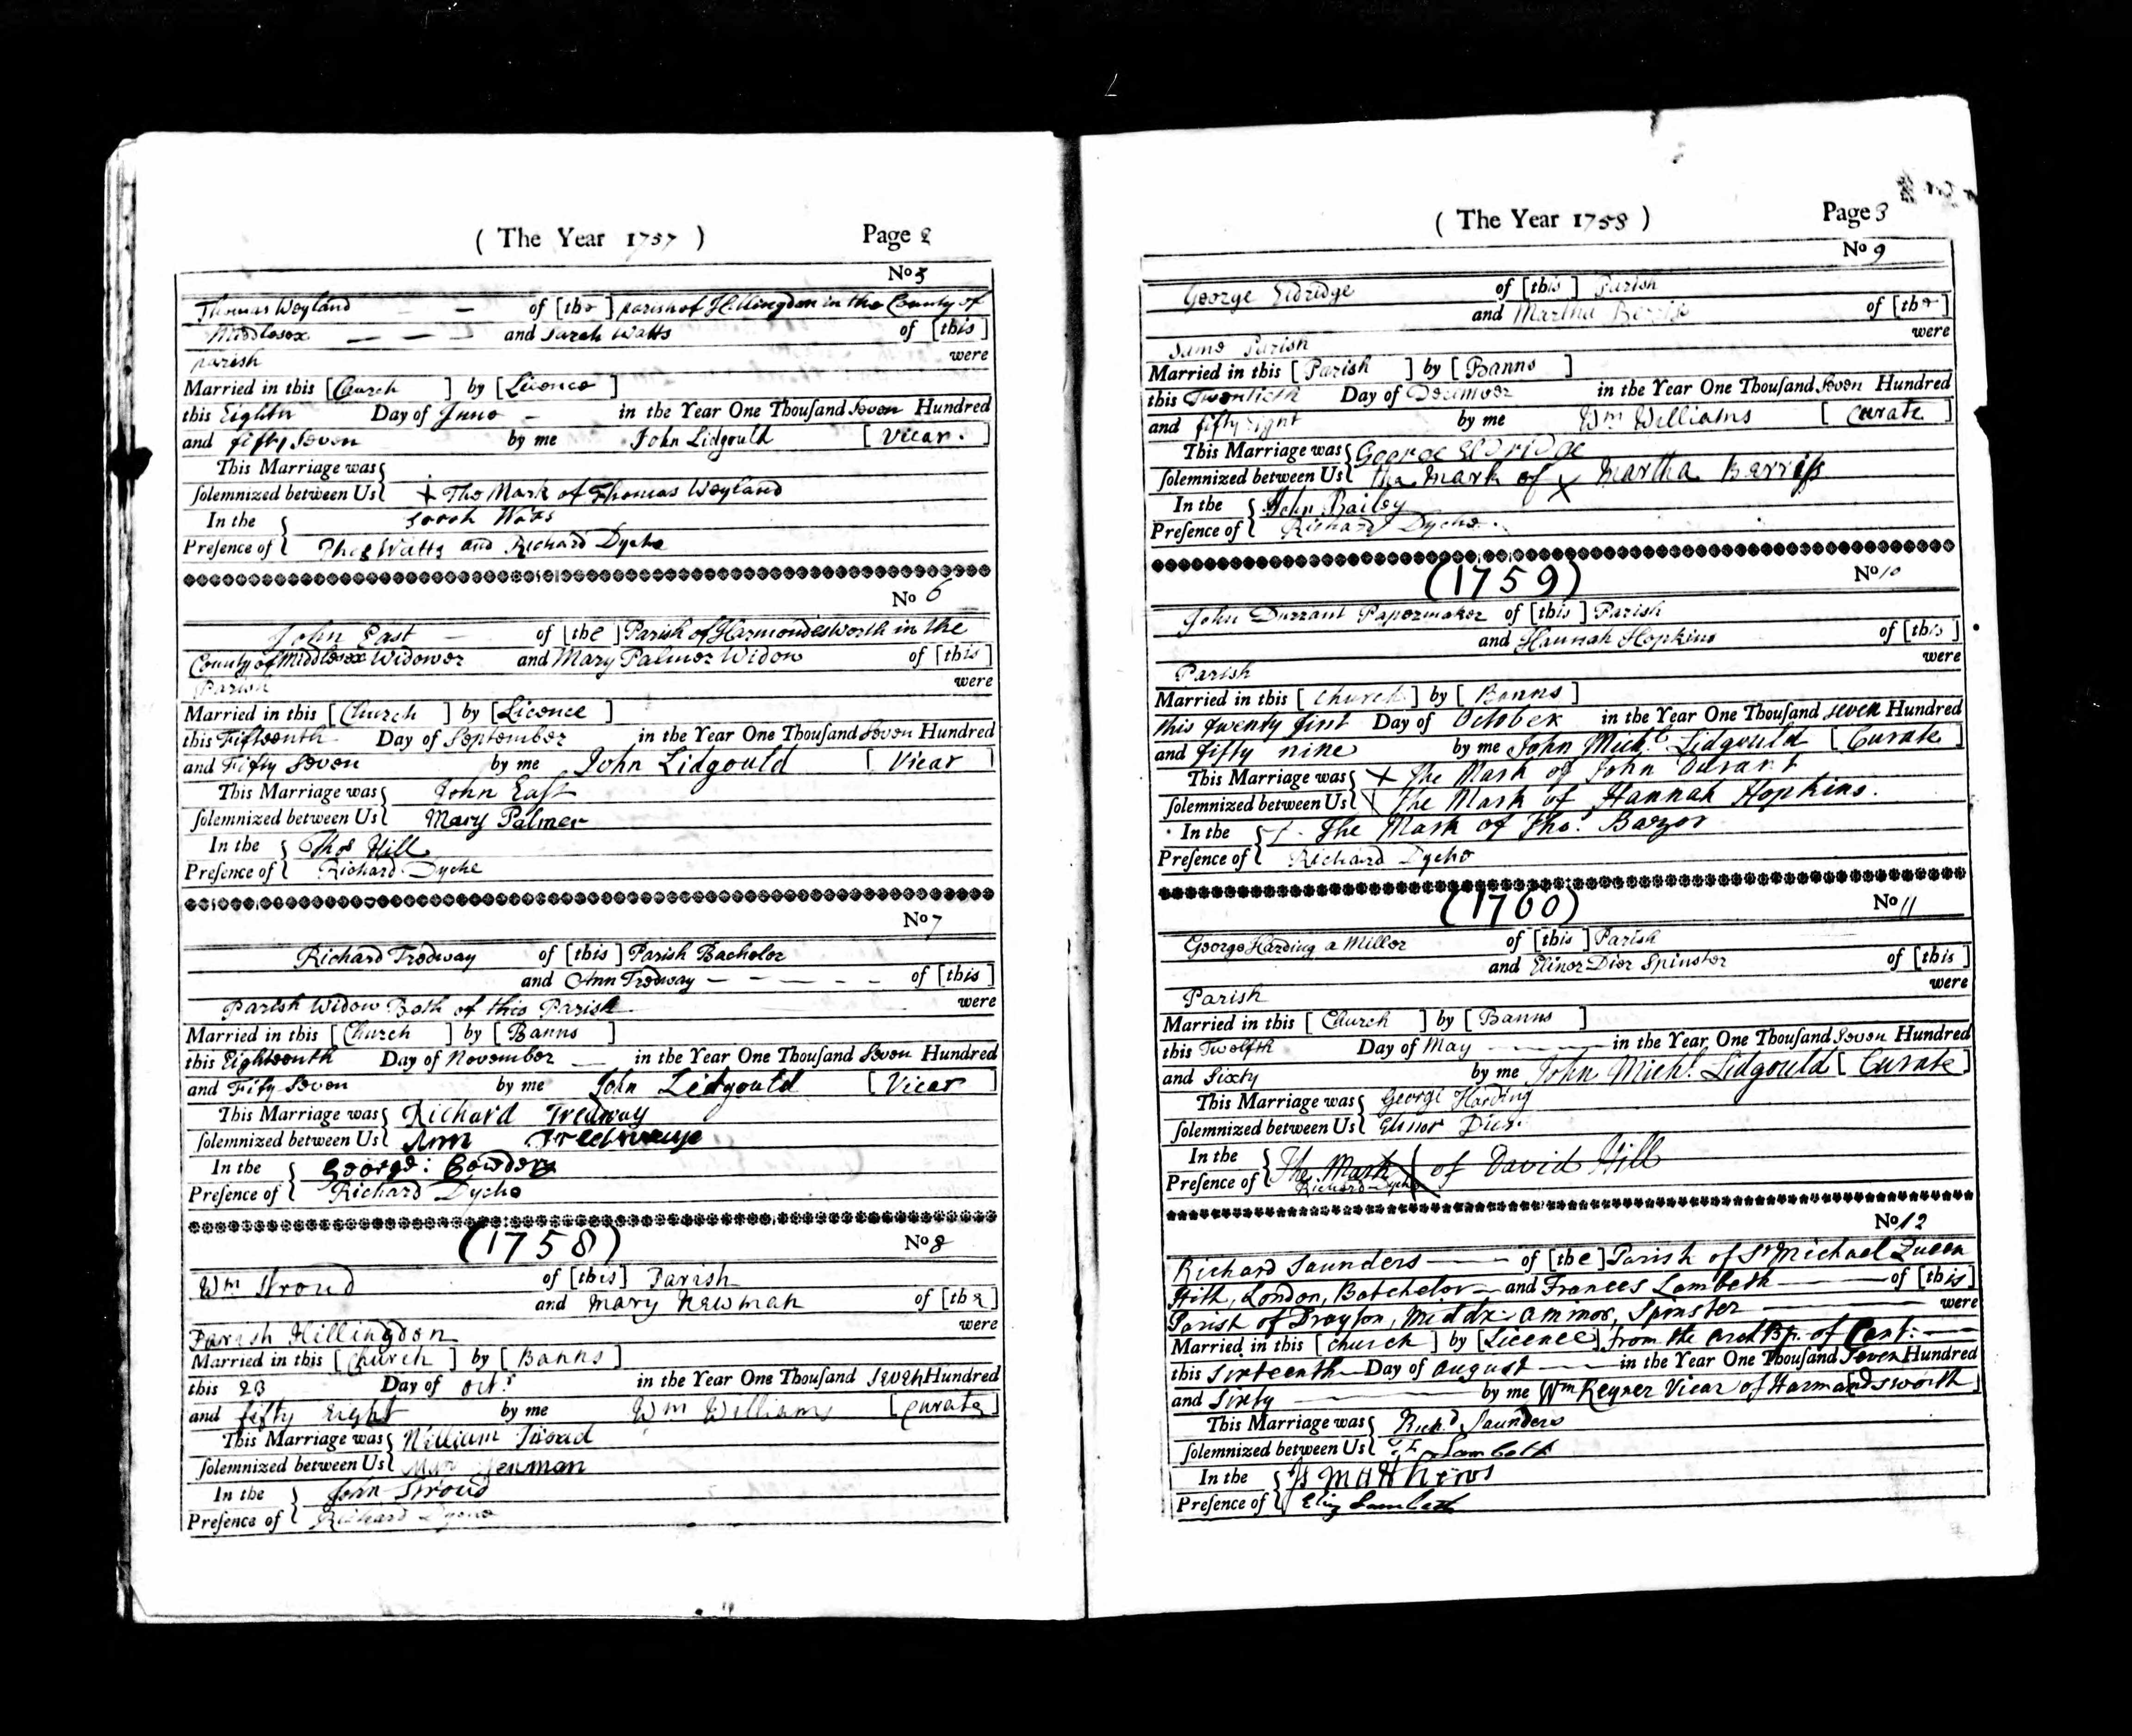 ( The Year 1757 ) Page 2
No 5
Thomas Weyland — of [the] parish of Hillingdon in the County of
Middlesex — — — and Sarah Watts of [this]
parish were
Married in this [Church ] by [Licence ]
this Eighth Day of June — in the Year One Thouſand Seven Hundred
and fifty Seven by me John Lidgould [Vicar.]
This Marriage was
ſolemnized between Us X The Mark of Thomas Weyland
In the Sarah Watts
Preſence of Thos Watts and Richard Dyche
No 6
John East — of [the] Parish of Harmondesworth in the
County of Middlesex Widower and Mary Palmer Widow of [this]
Parish were
Married in this [Church ] by [Licence ]
this Fifteenth Day of September in the Year One Thouſand Seven Hundred
and Fifty Seven by me John Lidgould [Vicar ]
This Marriage was John Eaſt
ſolemnized between Us Mary Palmer
In the Thos Hill
Preſence of Richard Dyche
No 7
Richard Tredway of [this] Parish Bachelor
and Ann Tredway — — — — of [this]
Parish Widow Both of this Parish were
Married in this [Church ] by [Banns ]
this Eighteenth Day of November — in the Year One Thouſand Seven Hundred
and Fifty Seven by me John Lidgould [Vicar ]
This Marriage was Richard Tredway
ſolemnized between Us Ann
In the George:
Preſence of Richard Dyche
(1758) No 8
Wm Stroud of [this] Parish
and Mary Newman of [the]
Parish Hillingdon were
Married in this [Church ] by [Banns]
this 23 Day of Octr in the Year One Thouſand Seven Hundred
and fifty Eight by me Wm Williams [Curate]
This Marriage was William Stroud
ſolemnized between Us
In the John Stroud
Preſence of Richard Dyche
( The Year 1758 ) Page 3
No 9
George Eldridge of [this] Parish
and Martha of [the]
Same Parish were
Married in this [Parish ] by [Banns ]
this Twentieth Day of in the Year One Thouſand Seven Hundred
and fifty Eight by me Wm Williams [Curate ]
This Marriage was George Eldridge
ſolemnized between Us the Mark of X Martha Barriſs
In the John Bailey
Preſence of Richard Dyche
(1759) No 10
John Durrant Papermaker of [this] Parish
and Hannah Hopkins of [this]
Parish were
Married in this [Church ] by [Banns ]
this twenty first Day of October in the Year One Thouſand seven Hundred
and fifty nine by me John Michl Lidgould [Curate]
This Marriage was X The Mark of John Durant
ſolemnized between Us The Mark of Hannah Hopkins.
In the The Mark of Thos
Preſence of Richard Dyche
(1760) No 11
George Harding a Miller of [this] Parish
and Elinor Dier Spinster of [this]
Parish were
Married in this [Church ] by [Banns ]
this Twelfth Day of May — in the Year One Thouſand Seven Hundred
and Sixty by me John Michl. Lidgould [Curate]
This Marriage was George Harding
ſolemnized between Us Elinor Dier
In the The Mark X of David Hill
Preſence of Richard Dyche
No 12
Richard Saunders — of [the] Parish of St Michael Queen
Hith, London, Batchelor — and Frances Lambeth — of [this]
Parish of Drayton, Middx: a minor, Spinster — were
Married in this [church ] by [Licence] from the ArchBp. of Cant: —
this sixteenth Day of August — in the Year One Thouſand Seven Hundred
and Sixty — by me Wm Reyner Vicar of Harmandsworth
This Marriage was Richd Saunders
ſolemnized between Us F Lambeth
In the Mathews
Preſence of Eliz Lambeth